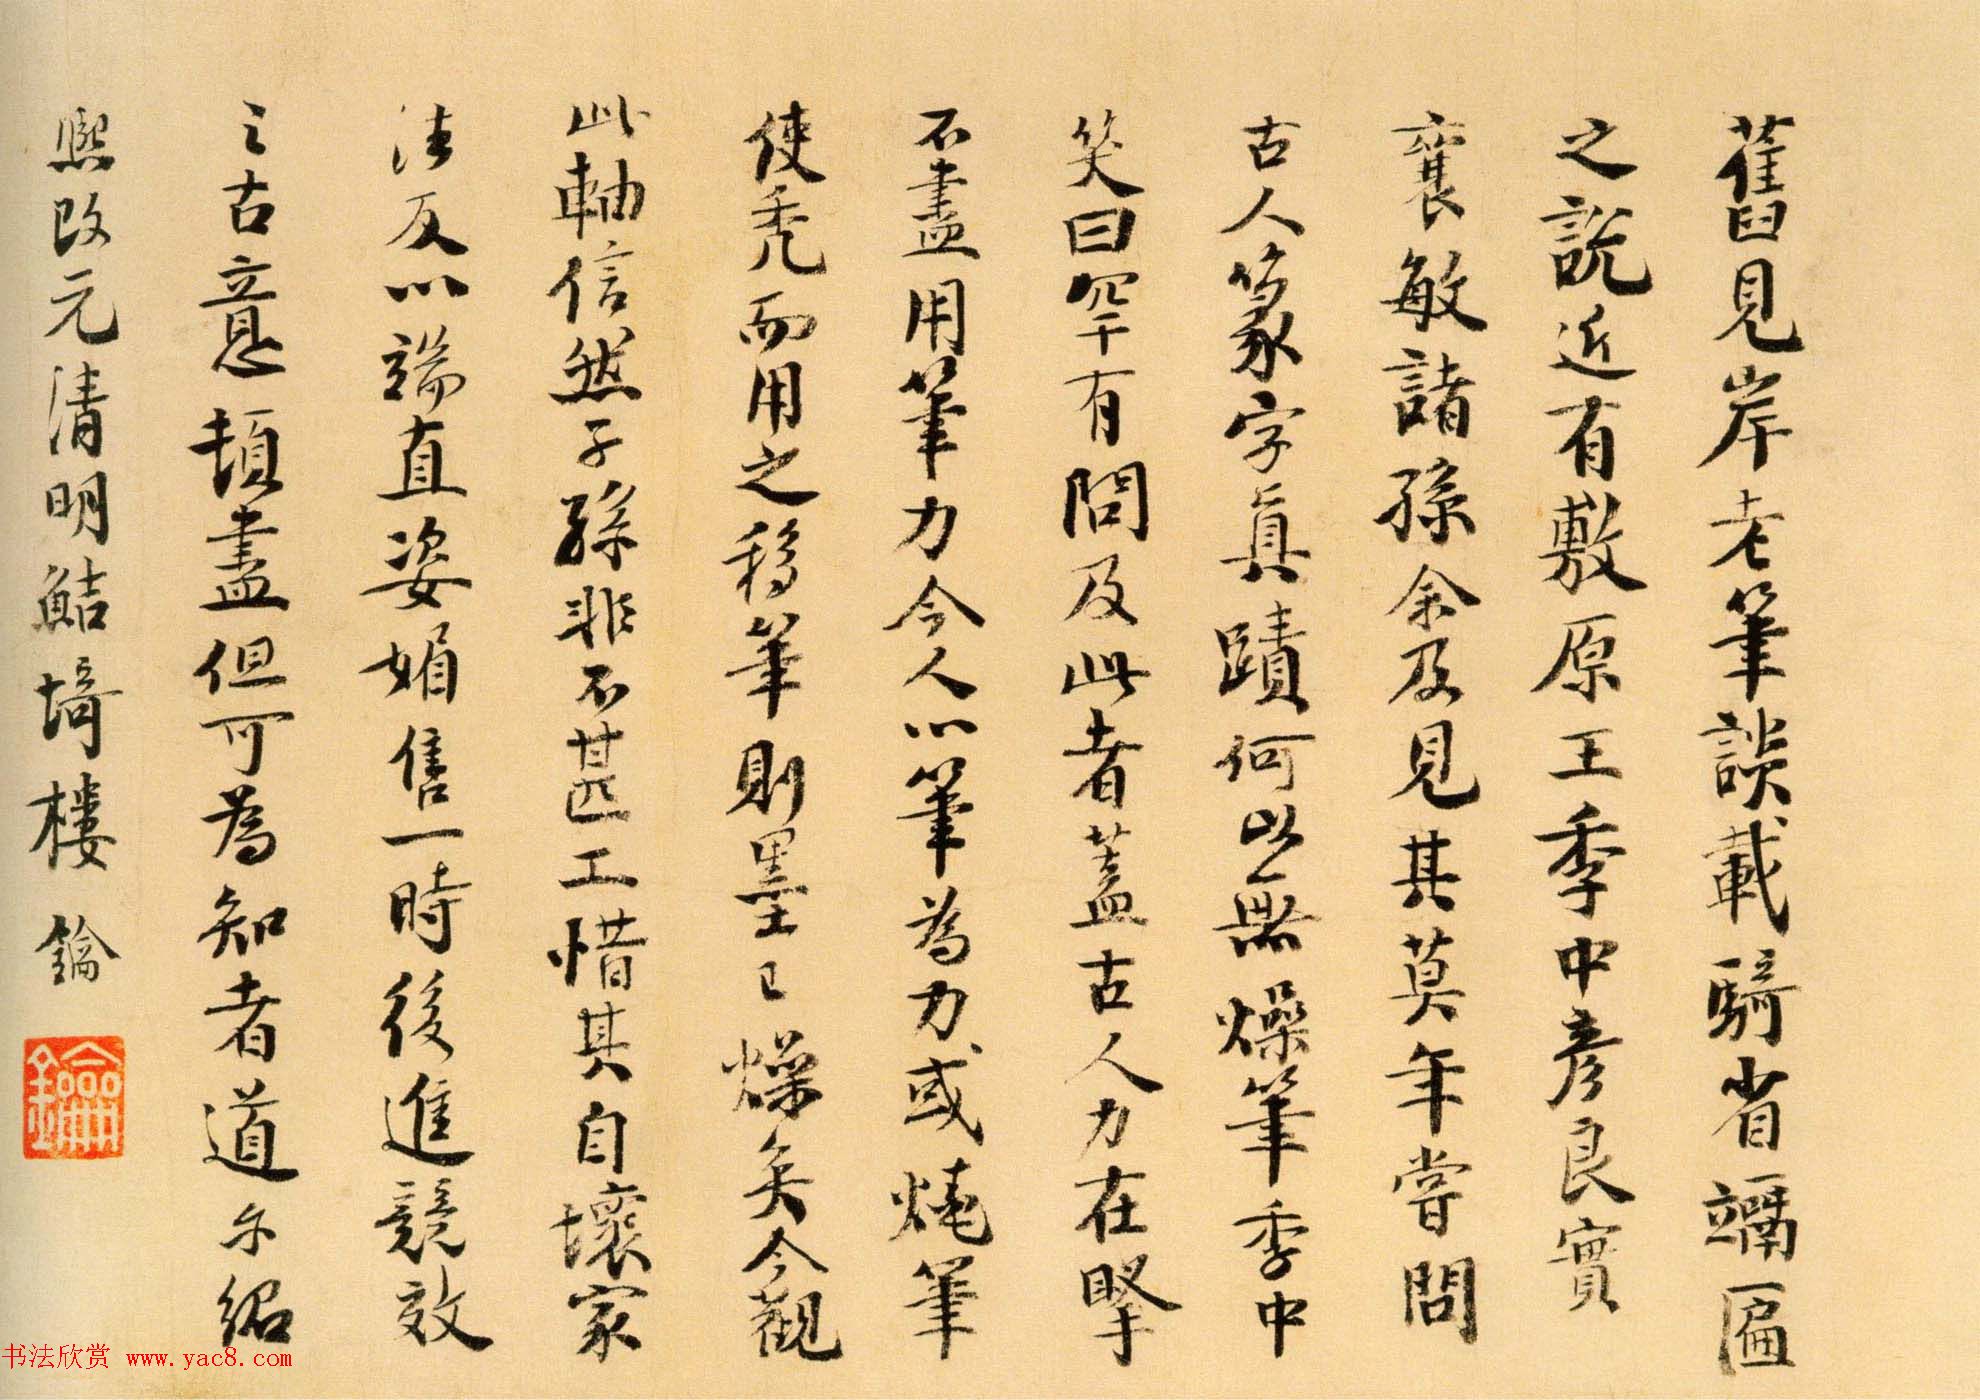 舊見岸老筆談載騎省䠂匾
之說近有敷原王季中彥良實
襄敏諸孫余及見其莫年嘗問
古人篆字真蹟何以無燥筆季中
笑曰罕有問及此者蓋古人力在掔
不盡用筆力今人以筆為力或燒筆
使禿而用之移筆則墨已燥矣今觀
此軸信然子孫非不甚工惜其自壞家
法反以端直姿媚售一時後進競效
之古意頓盡但可為知者道尒紹
熙改元清明鮚埼樓鑰
書法欣赏 www.yac8.com